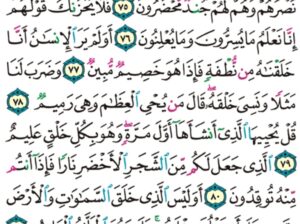 نَصْرَهُمْ وَهُمْ لَهُمْ جُندٌ مُّحْضَرُونَ ٧٥ فَلَا يَحْزُنكَ قَوْلُهُمْ
إِنَّا نَعْلَمُ مَا يُسِرُّونَ وَمَا يُعْلِنُونَ ٧٦ أَوَلَمْ يَرَ الْإِنسَانُ أَنَّا
خَلَقْنَاهُ مِن نُّطْفَةٍ فَإِذَا هُوَ خَصِيمٌ مُّبِينٌ ٧٧ وَضَرَبَ لَنَا
مَثَلًا وَنَسِيَ خَلْقَهُ قَالَ مَن يُحْيِ الْعِظَامَ وَهِيَ رَمِيمٌ ٧٨
قُلْ يُحْيِيهَا الَّذِي أَنشَأَهَا أَوَّلَ مَرَّةٍ وَهُوَ بِكُلِّ خَلْقٍ عَلِيمٌ
٧٩ الَّذِي جَعَلَ لَكُم مِّنَ الشَّجَرِ الْأَخْضَرِ نَارًا فَإِذَا أَنتُم
مِّنْهُ تُوقِدُونَ ٨٠ أَوَلَيْسَ الَّذِي خَلَقَ السَّمَاوَاتِ وَالْأَرْضَ